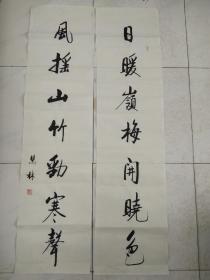 日暖嶺梅開曉色
風摇山竹勁寒聲